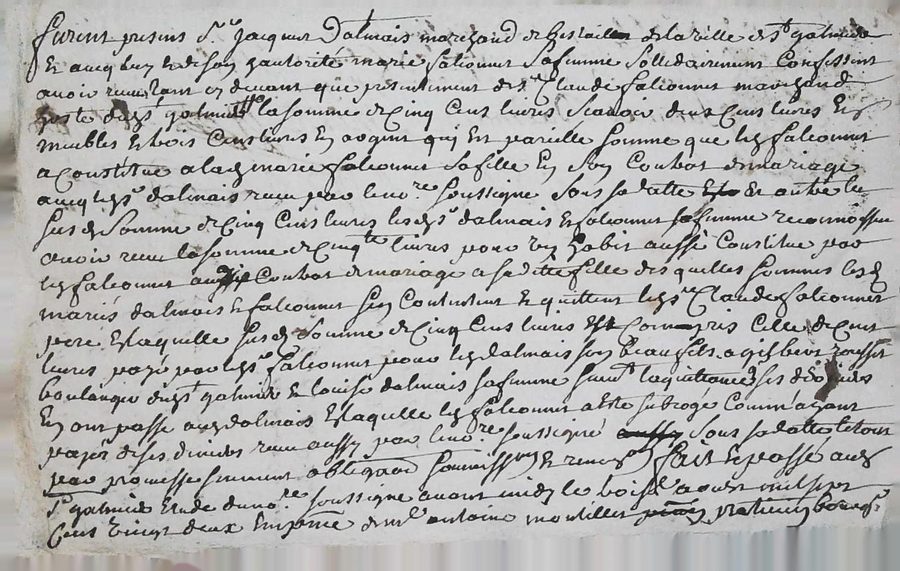 furent presens Sr Jacques Dalmais marchand de bestailx de la ville de St galmier
Et aucq luy et de son hautorité marie falconnet Sa femme Sollidairement Confessent
avoir receu tant cy devant que présentement de Sr Claude falconnet marchand
dud St galmier la somme de Cinq Cens livres Scavoir deux Cens livres En
meubles Et trois Cens livres En argent qui Est pareille somme que led falconnet
a Constitué a lad marie falconnet Sa fille En Son Contrat de mariage
aucq led Sr dalmais receu par le nore Soussigné Sous Sa datte Et outre la
Susd Somme de Cinq Cens livres lesd Sr dalmais Et falconnet Sa femme reconnoissent
avoir receu la somme de Cinqte livres pour habit aussi Constitué par
led falconnet aud Contrat de mariage a sadite fille desquelles Sommes lesd
mariés dalmais Et falconnet Sen Contentent Et quittent led Sr Claude falconnet
pere Et laquelle Susd Somme de Cinq Cens livres Est Compris Celle de Cent
livres payé par led Sr falconnet pour led dalmais Son beau fils a gisbert rousset
boulanger dud St galmier Et louise dalmais Sa femme
En ont passé aud dalmais Et laquelle led falconnet a Esté Subrogé Comme ayant
payé de Ses deniers receu aussy par le nore Soussigné Sous Sa datte le tout
par promesse Serment obligaon Soumissons Et renons fait Et passé aud
St galmier Etude du nore Soussigné avant midy le mil Sept
Cens vingt deux En pnce de me antoine montillet praticien